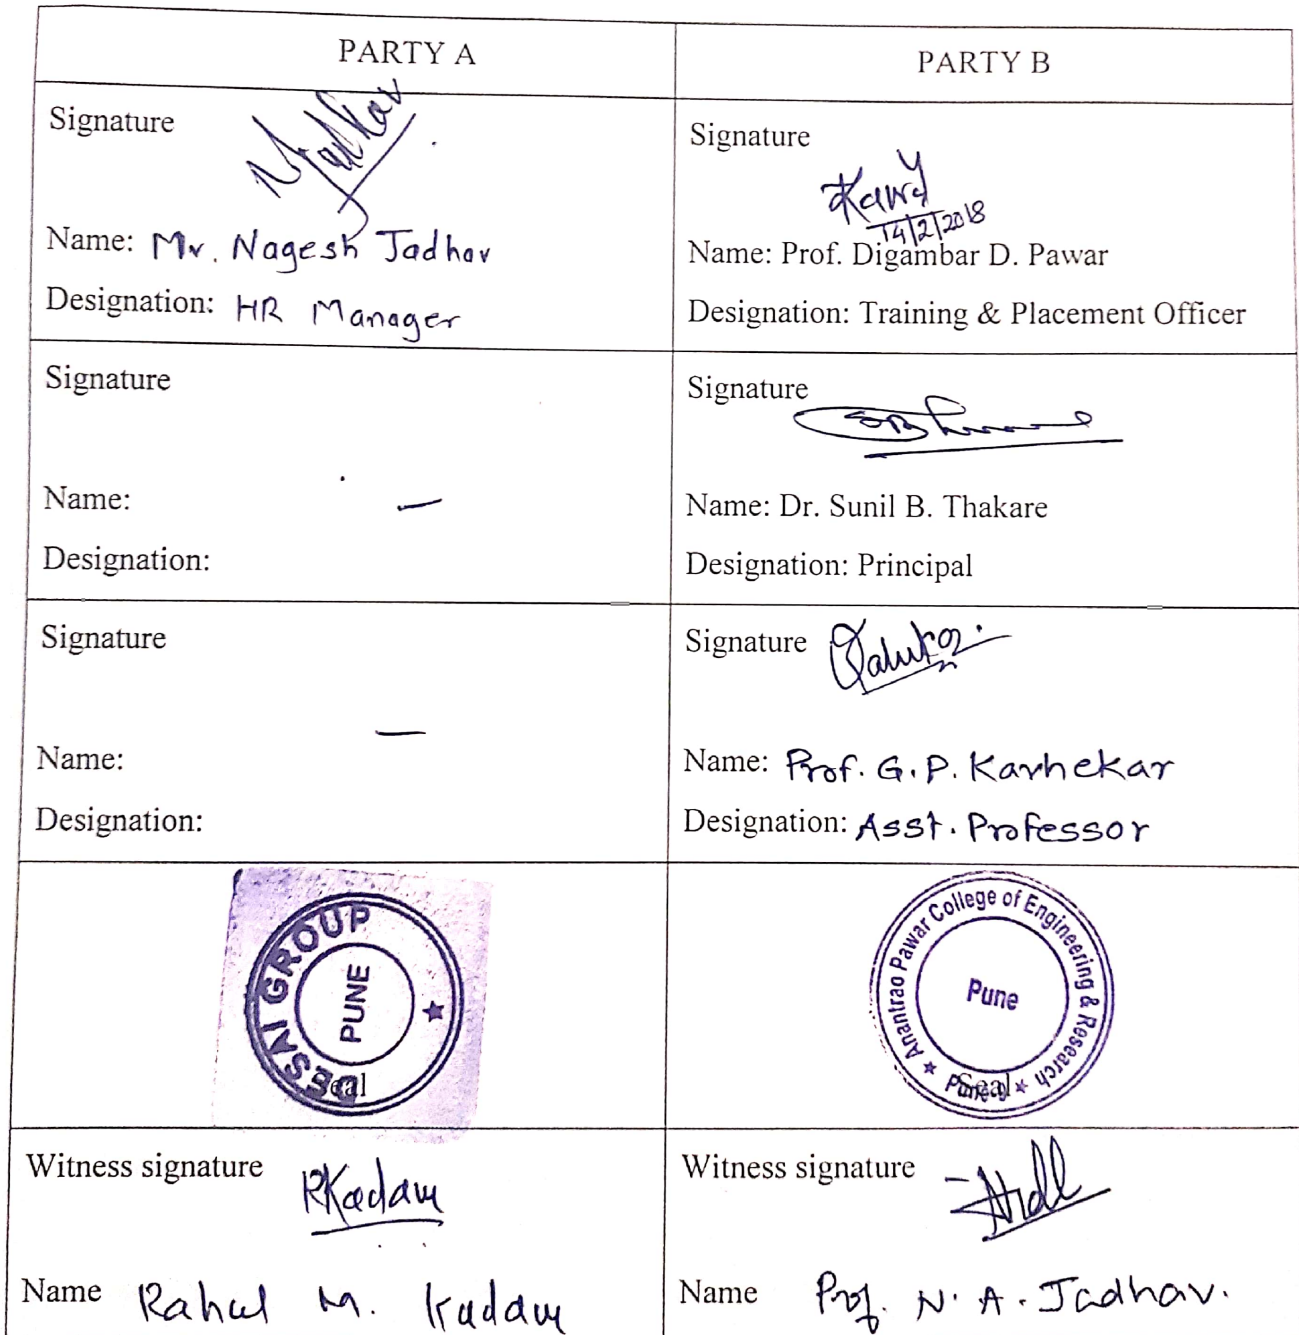 PARTY A
PARTY B
Signature
NJadhav
Name: Mr. Nagesh Jadhav
Designation: HR Manager
Signature
14/2/2018
Name: Prof. Digambar D. Pawar
Designation: Training & Placement Officer
Signature
Name: —
Designation:
Signature
Name: Dr. Sunil B. Thakare
Designation: Principal
Signature
—
Name:
Designation:
Signature
Name: Prof. G.P. Karhekar
Designation: Asst. Professor
DESAI GROUP
PUNE
Seal
Anantrao Pawar College of Engineering & Research
Pune
Seal
Witness signature RKadam
Name Rahul M. Kadam
Witness signature
Name Prof. N. A. Jadhav.